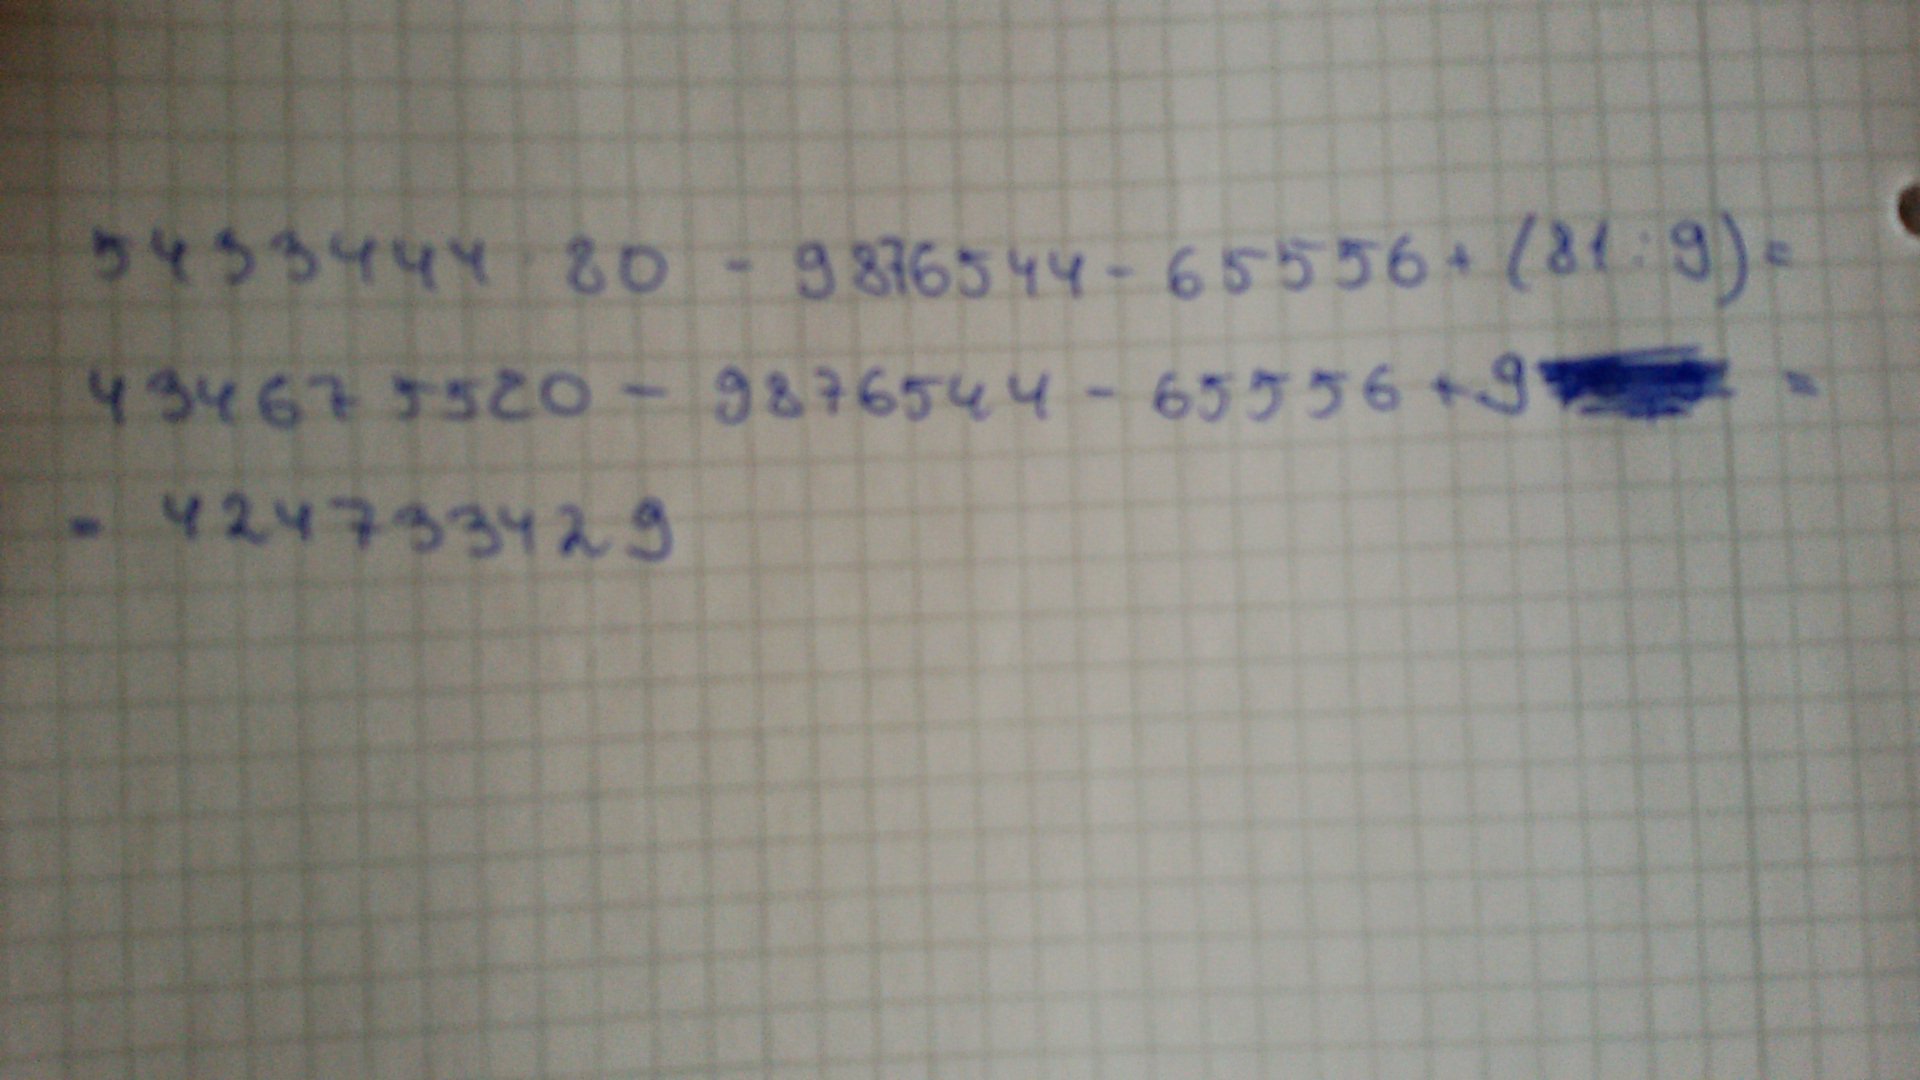 5433444 · 80 - 9876544 - 65556 + (81 : 9) =
434675520 - 9876544 - 65556 + 9 =
= 424733429